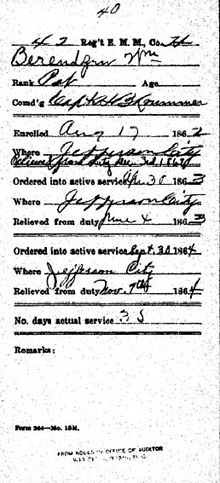 40
42 Reg't E. M. M., Co. H
Berendzen Wm
Rank Pvt Age
Comd'g Capt
Enrolled Aug 17 1862
Where Jefferson City
Relieved from duty
Ordered into active service 30 1863
Where Jefferson City
Relieved from duty June 4 1863
Ordered into active service Sept. 30 1864
Where Jefferson City
Relieved from duty Nov. 1864
No. days actual service 35
Remarks:
Form 244—No. 15M.
FROM ADJUTANT OFFICE OF AUDITOR